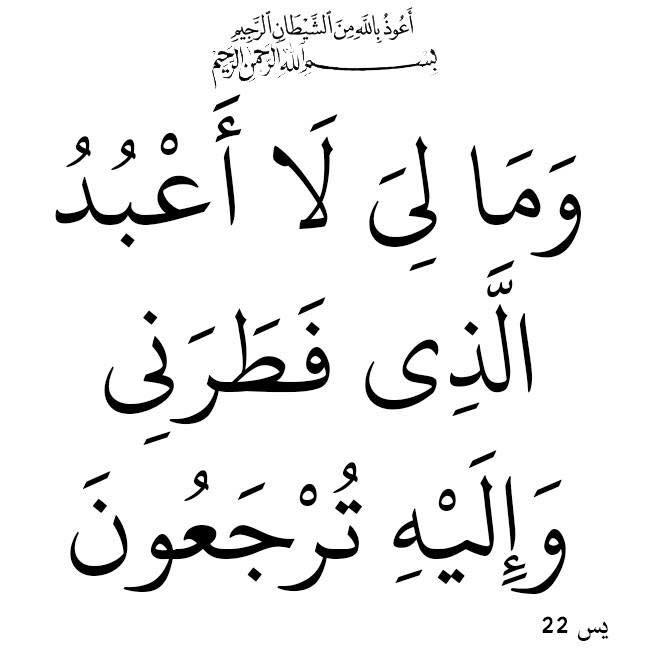 أَعُوذُ بِاللَّهِ مِنَ الشَّيْطَانِ الرَّجِيمِ
بِسْمِ اللَّهِ الرَّحْمَٰنِ الرَّحِيمِ
وَمَا لِىَ لَا أَعْبُدُ
الَّذِى فَطَرَنِى
وَإِلَيْهِ تُرْجَعُونَ
يس 22